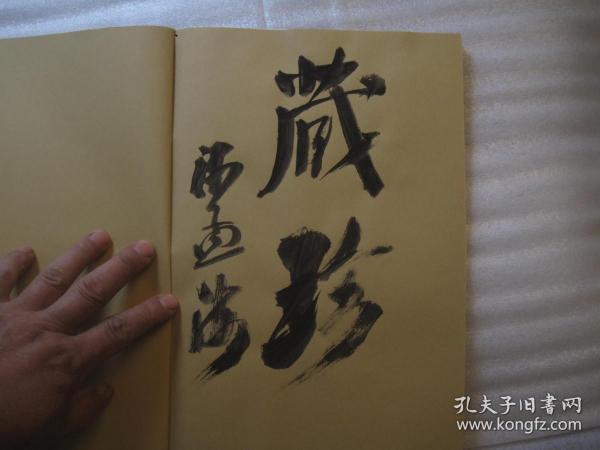 藏珍
沙孟海
孔夫子旧書网
www.kongfz.com